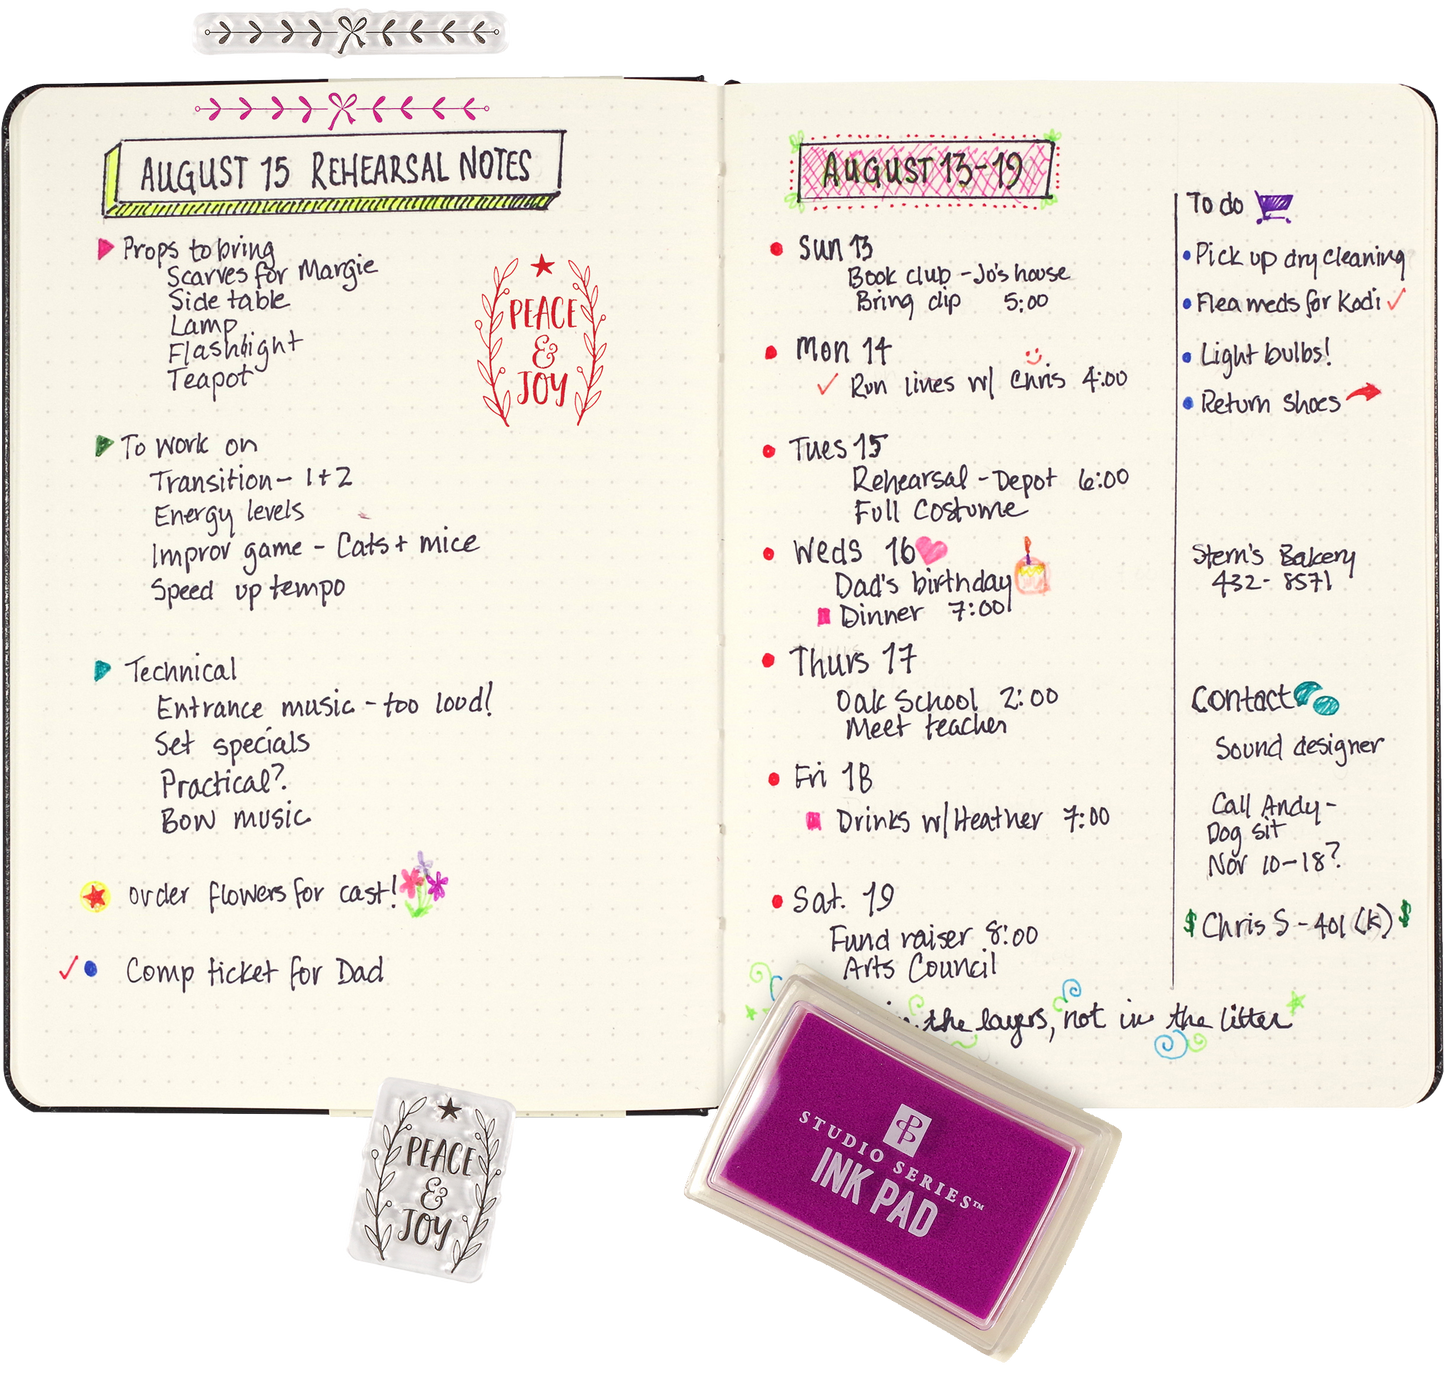 AUGUST 15 REHEARSAL NOTES
Props to bring
Scarves for Margie
Side table
Lamp
Flashlight
Teapot
PEACE
&
JOY
To work on
Transition - 1+2
Energy levels
Improv game - Cats + mice
Speed up tempo
Technical
Entrance music - too loud!
Set specials
Practical?
Bow music
order flowers for cast!
Comp ticket for Dad
AUGUST 13-19
Sun 13
Book club - Jo's house
Bring dip 5:00
Mon 14
Run lines w/ Chris 4:00
Tues 15
Rehearsal - Depot 6:00
Full Costume
Weds 16
Dad's birthday
Dinner 7:00
Thurs 17
Oak School 2:00
Meet teacher
Fri 18
Drinks w/ Heather 7:00
Sat. 19
Fund raiser 8:00
Arts Council
in the layers, not in the litter
To do
Pick up dry cleaning
Flea meds for Kodi
Light bulbs!
Return shoes
Stern's Bakery
432-8571
Contact
Sound designer
Call Andy -
Dog sit
Nov 10-18?
$ Chris S - 401(K) $
PEACE
&
JOY
STUDIO SERIES™
INK PAD